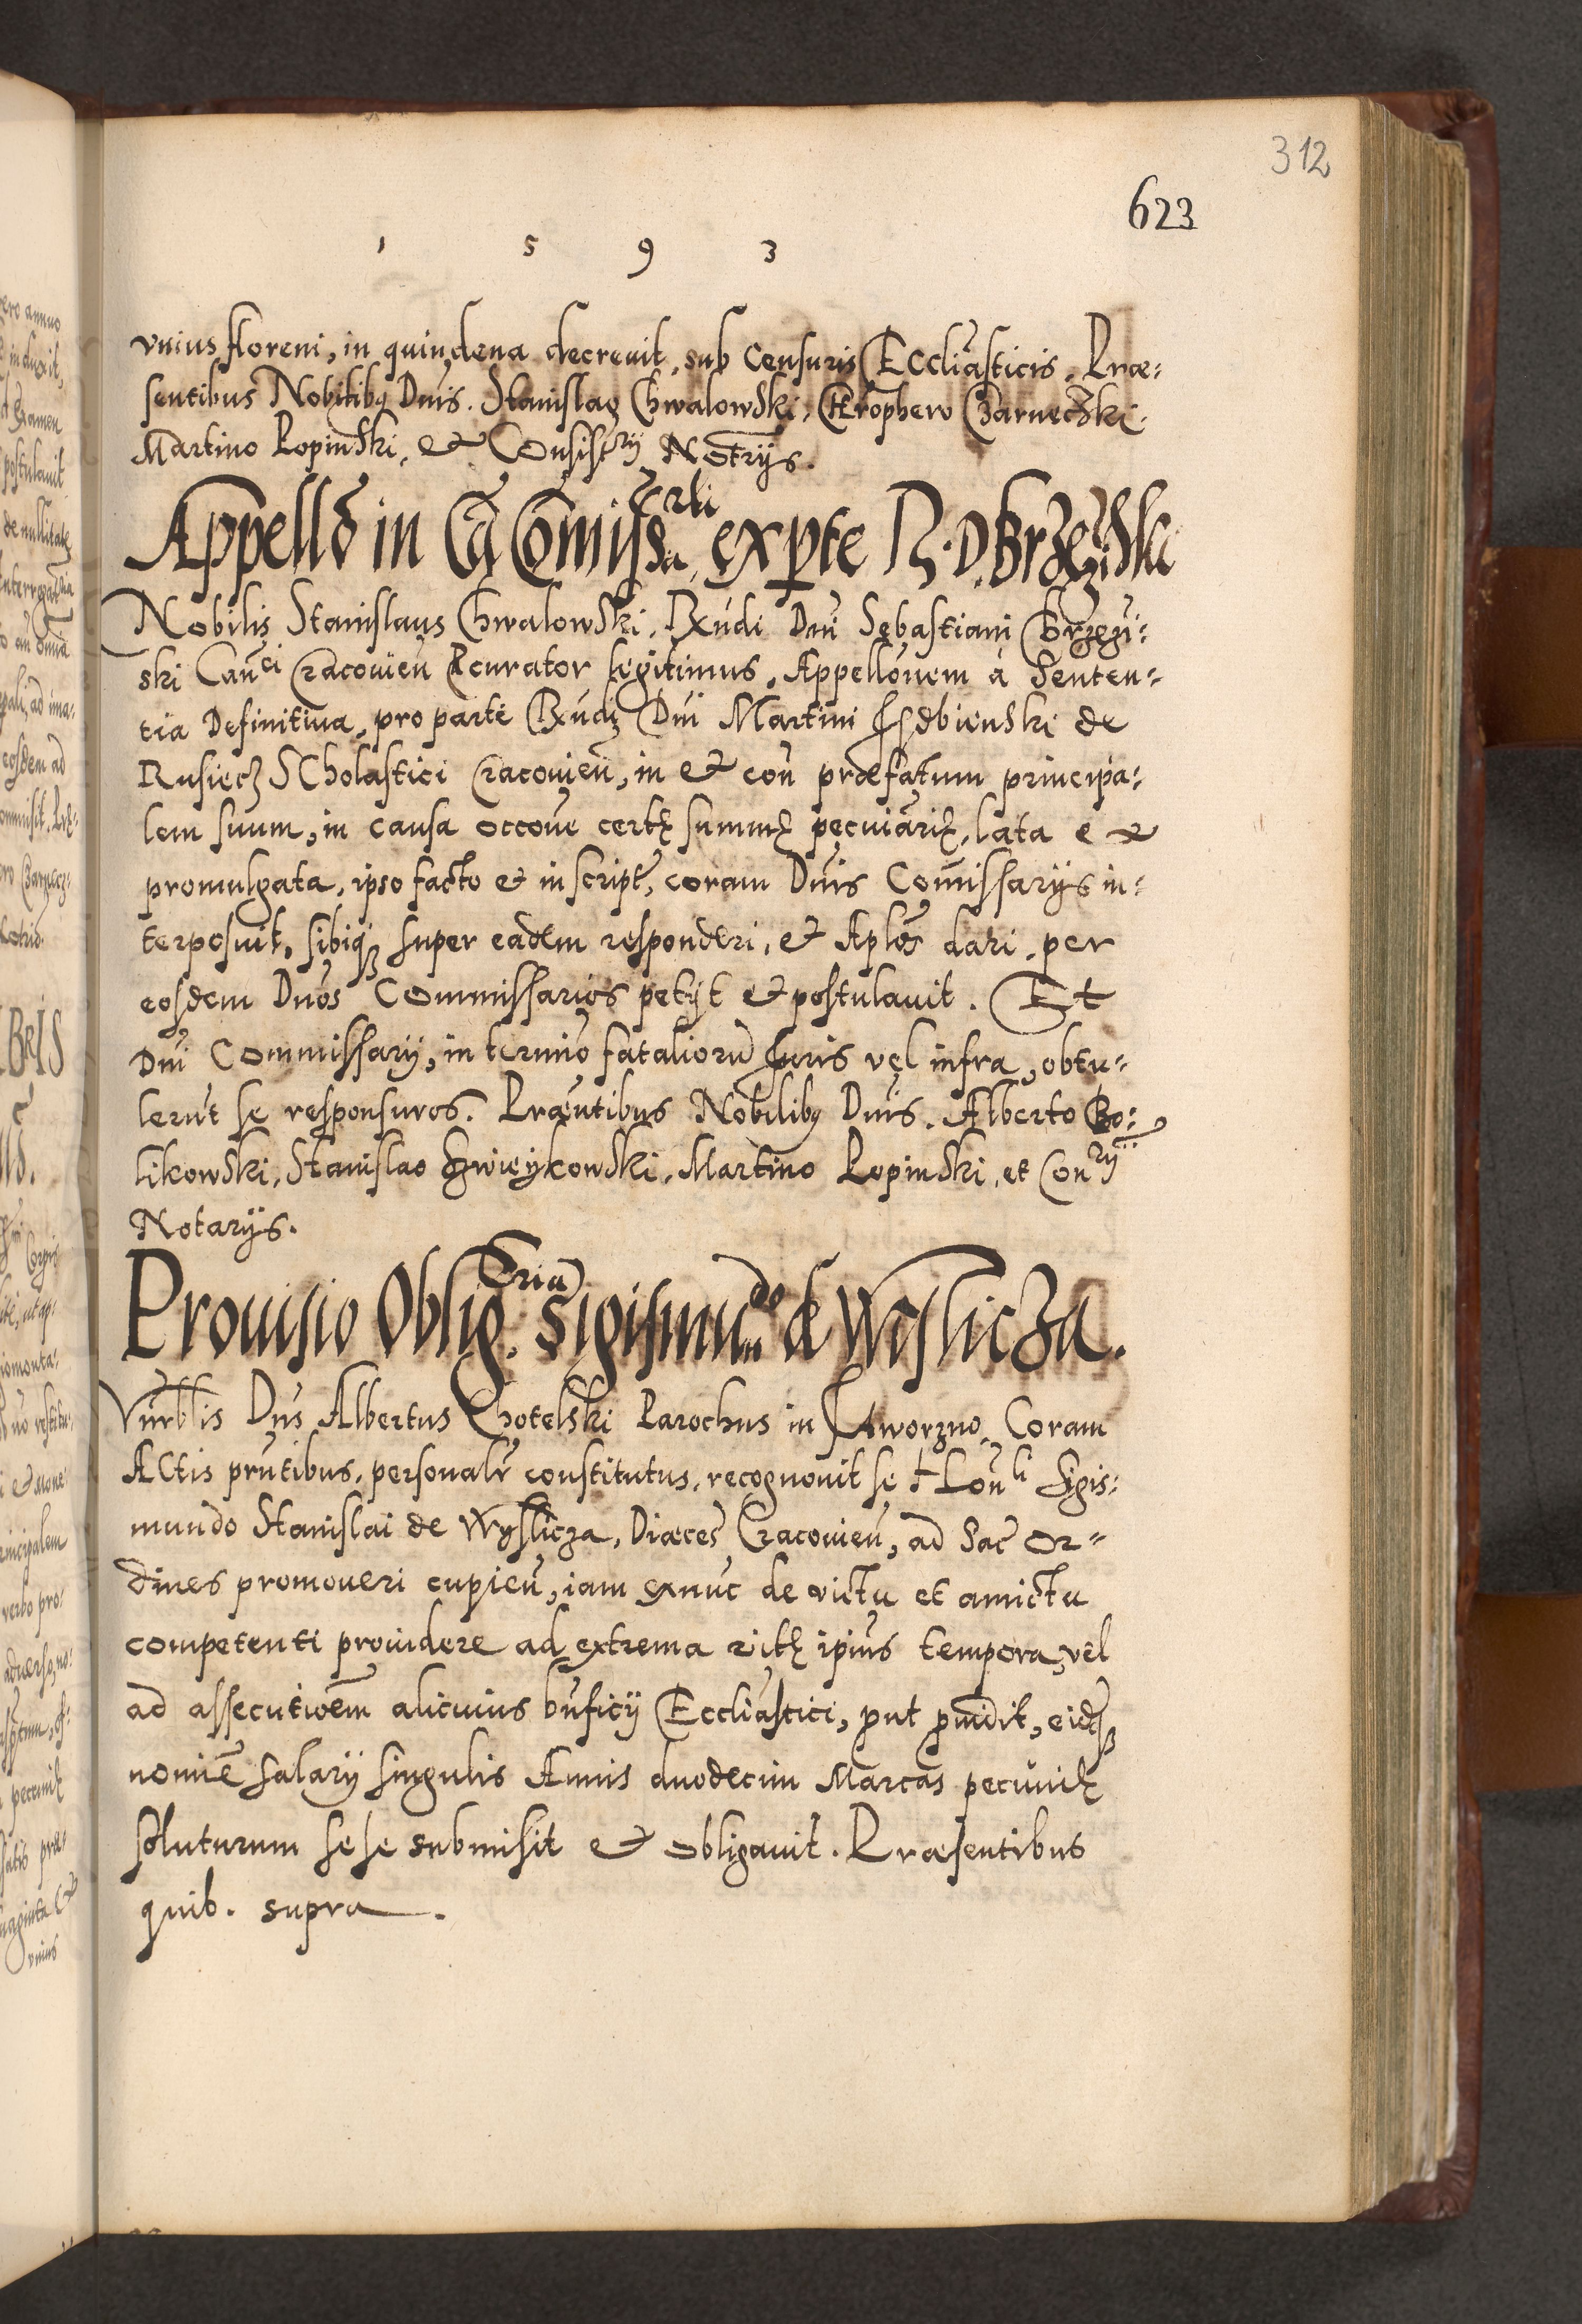 312
623
1 5 9 3
vnius floreni, in quindena decreuit, sub Censuris Eccliasticis. Præ:
sentibus Nobilibq Dnis. Stanislao Chwalowski, Chrophero Czarneczki,
Martino Ropinski, et Consistrij Notrijs.
Appello in Cã Comissrli ex pte R. D. Brzezinski
Nobilis Stanislaus Chwalowski, Rxudi Dni Sebastiani Brzezi:
ski Canci Cracouien Pcurator legitimus, Appellonem à Senten:
tia Definitiua, pro parte Rxudi Dni Martini Isdbienski de
Rusiecz Scholastici Cracouien, in et con præfatum principa:
lem suum, in causa occoue certę summę pecuiarię, lata et
promulgata, ipso facto et in script, coram Dnis Comissarijs in:
terposuit, sibiq super eadem responderi, et Aplos dari, per
eosdem Dnos Commissarios petijt et postulauit. Et
Dni Commissarij, in termino fataliorũ Iuris vel infra, obtu:
lerut se responsuros. Præntibus Nobilibq Dnis. Alberto Bo:
likowski, Stanislao Zwieykowski, Martino Ropinski, et Conrij
Notarijs.
Prouisio Obligria Sigismundo de Wisliczа.
Vnrblis Dns Albertus Chotelski Parochus in Jaworzno, Coram
Actis prntibus, personalr constitutus, recognouit se Honli Sigis:
mundo Stanislai de Wyslicza, Diæces Cracouien, ad Sac or:
dines promoueri cupien, iam exnuc de victu et amictu
competenti prouidere ad extrema vitę ipius tempora, vel
ad assecutioem alicuius bnficij Eccliastici, put puidit, eidq
nomie salarij singulis Annis duodecim Marcas pecunię
soluturum sese submisit et obligauit. Præsentibus
quib. supra.